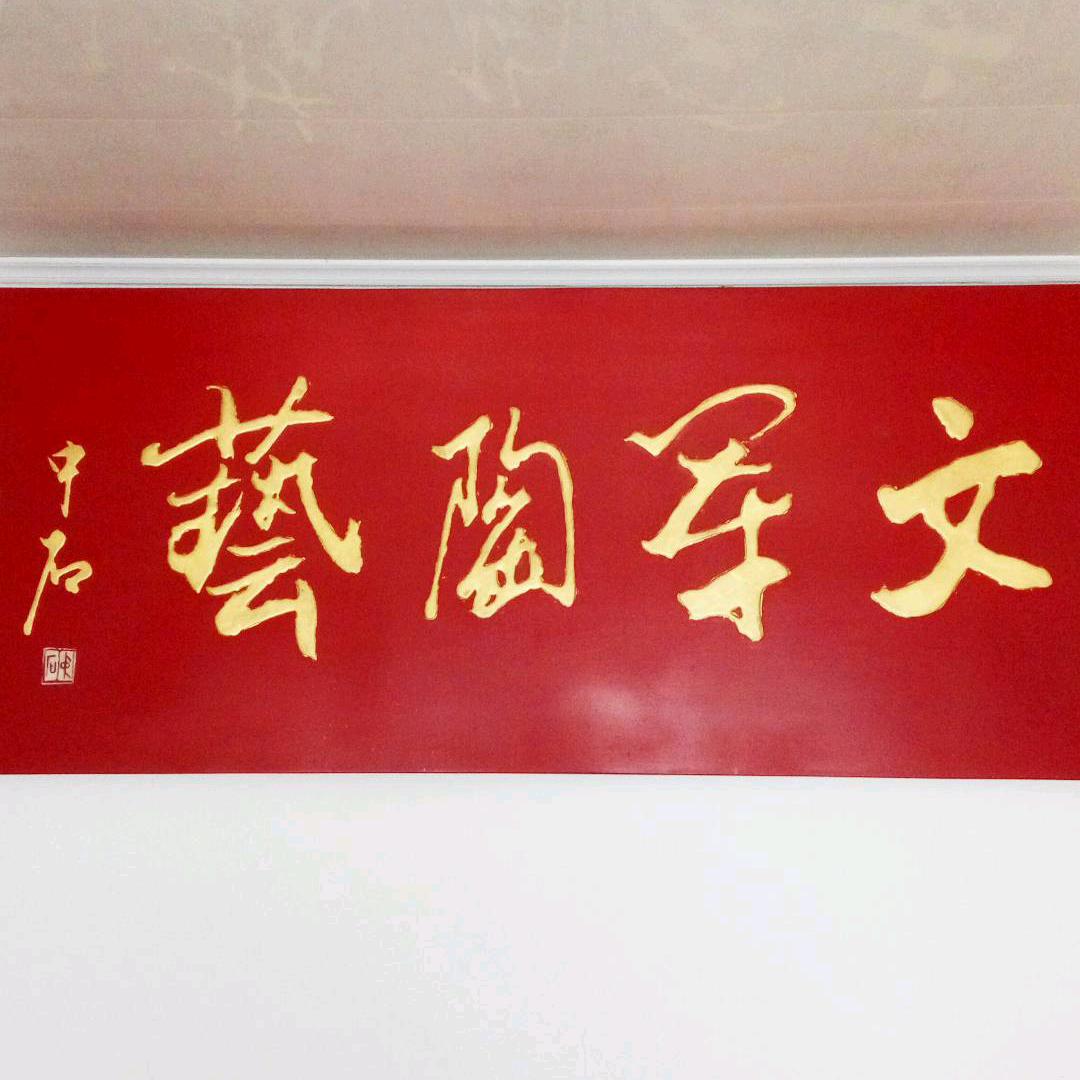 文軍陶藝
中石